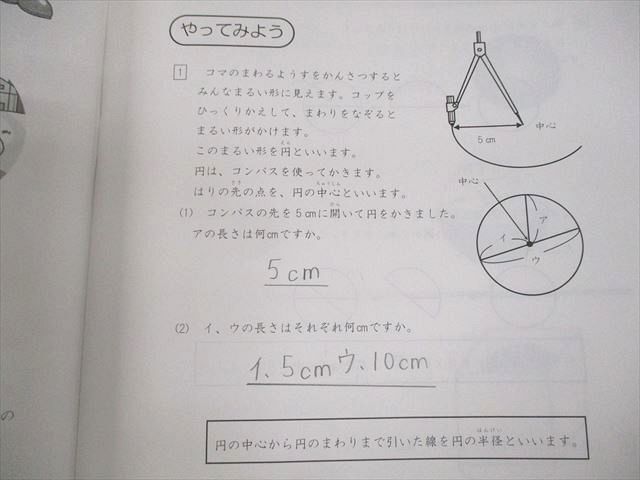 やってみよう
1 コマのまわるようすをかんさつすると
みんなまるい形に見えます。コップを
ひっくりかえして、まわりをなぞると
まるい形がかけます。
このまるい形を円といいます。
円は、コンパスを使ってかきます。
はりの先の点を、円の中心といいます。
(1) コンパスの先を5cmに開いて円をかきました。
アの長さは何cmですか。
5cm
(2) イ、ウの長さはそれぞれ何cmですか。
イ、5cm ウ、10cm
円の中心から円のまわりまで引いた線を円の半径といいます。
5cm
中心
中心
ア
イ
ウ
の